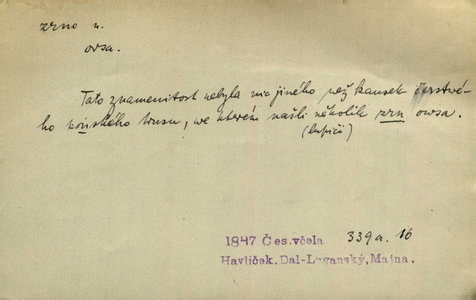 zrno n.
ovsa.
Tato znamenitost nebyla nic jiného než kousek čerstvé-
ho koňského trusu, we kterém našli několik zrn owsa.
(lupiči)
1847 Čes.včela 339a.16
Havlíček. Dal-Luganský, Majna.